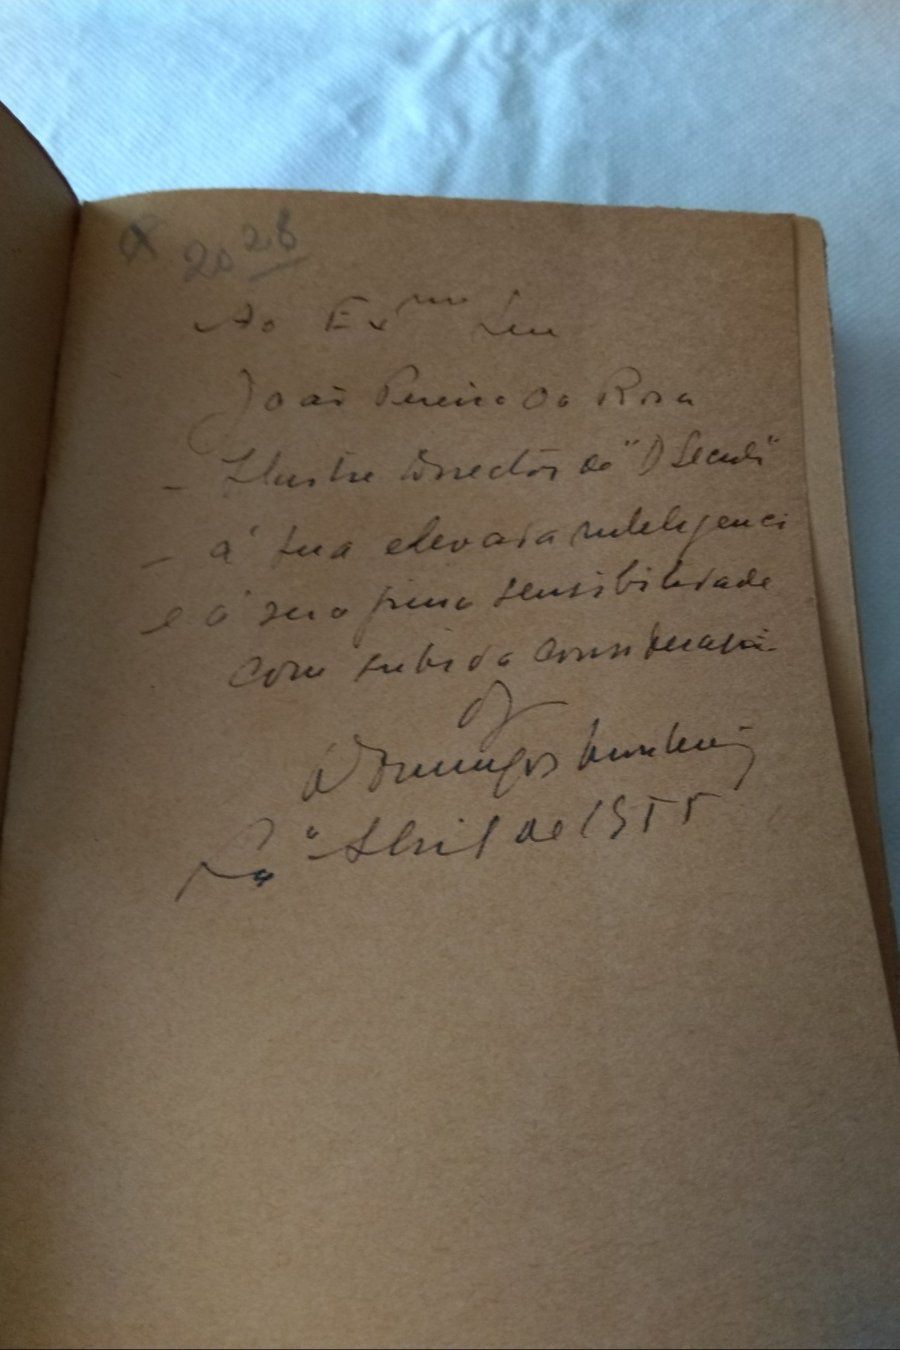 2028
Ao Exmo Snr
João Pereira da Rosa
- Ilustre Director do "O Seculo"
- á sua elevada inteligenci
e á sua fina sensibilidade
com subida consideração
of
Domingos
Lxa Abril de 1955